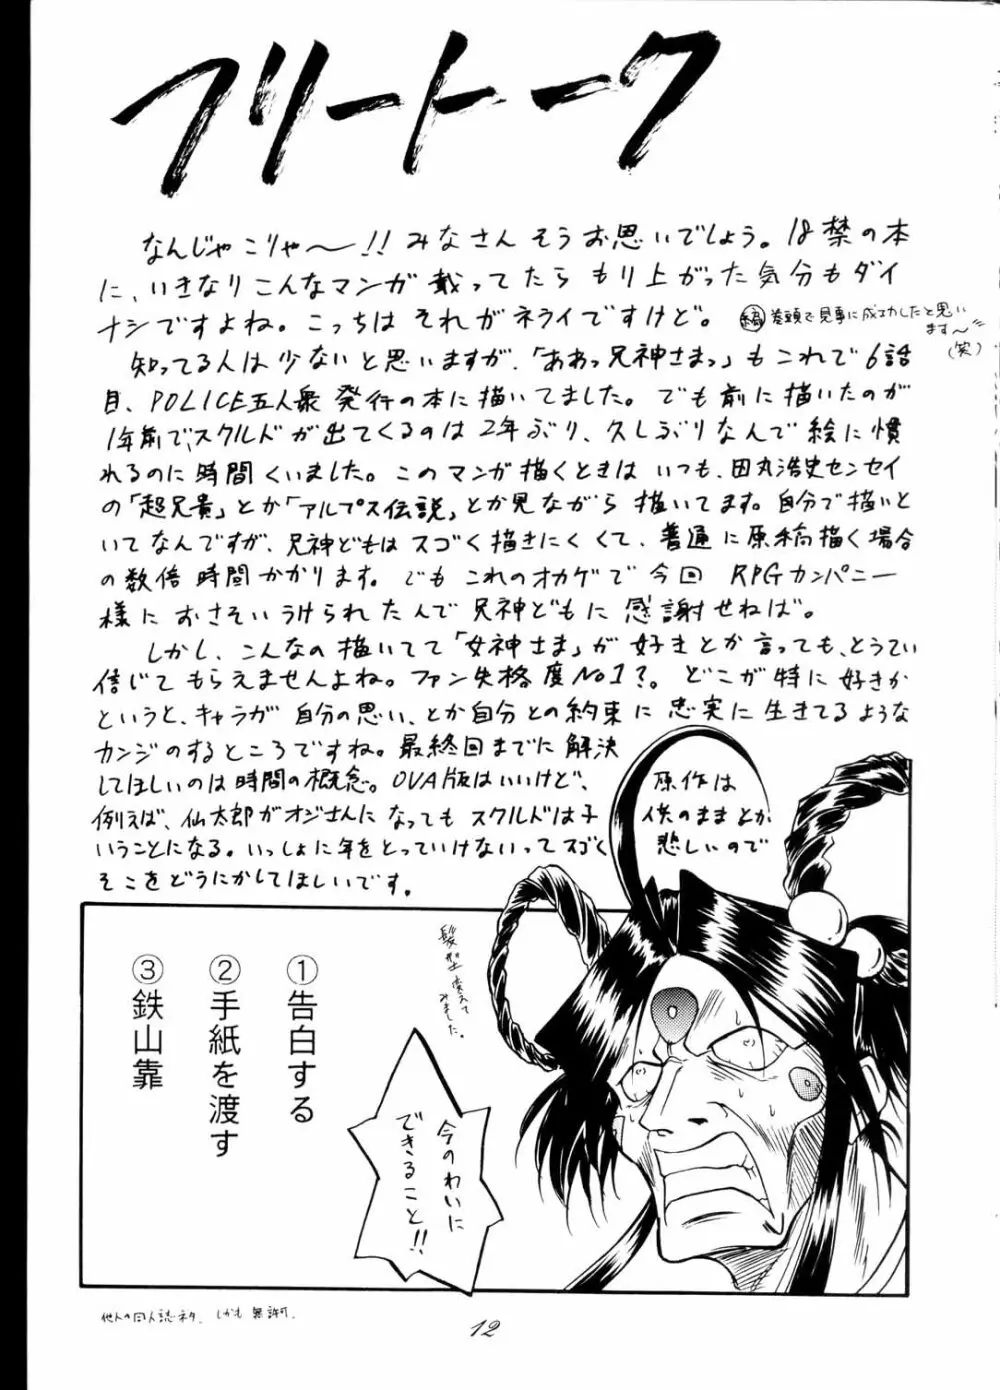 フリートーク
なんじゃこりゃ〜!! みなさんそうお思いでしょう。18禁の本
に、いきなりこんなマンガ載ってたら もり上がった気分もダイ
ナシですよね。こっちは それがネライですけど。
巻頭で見事に成功したと思い
ます〜
(笑)
知ってる人は少ないと思いますが、「ああっ兄神さまっ」もこれで6話
目、POLICE五人衆 発行の本に描いてました。でも前に描いたのが
1年前で、スクルドが出てくるのは2年ぶり、久しぶりなんで絵に慣
れるのに時間くいました。このマンガ描くときは いつも、田丸浩史センセイ
の「超兄貴」とか「アルプス伝説」とか見ながら 描いてます。自分で描いと
いてなんですが、兄神どもはスゴく描きにくくて、普通に原稿描く場合
の数倍時間かかります。でも これのオカゲで今回 RPGカンパニー
様に おさそいうけられたんで兄神どもに 感謝せねば。
しかし、こんなの描いてて「女神さま」が 好きとか言っても、とうてい
信じて もらえませんよね。ファン失格度No1?。どこが特に好きか
というと、キャラが 自分の思い、とか自分との約束に 忠実に生きてるような
カンジのするところですね。最終回までに解決
してほしいのは時間の概念。OVA版はいいけど、
原作は
例えば、仙太郎がオジさんに なっても スクルドは子
供のままとか
いうことになる。いっしょに年をとっていけないってスゴく
悲しいので
そこをどうにかしてほしいです。
髪型変えて
みました。
①告白する
②手紙を渡す
③鉄山靠
今のわいに
できること!!
他人の同人誌ネタ。しかも 無許可。
12